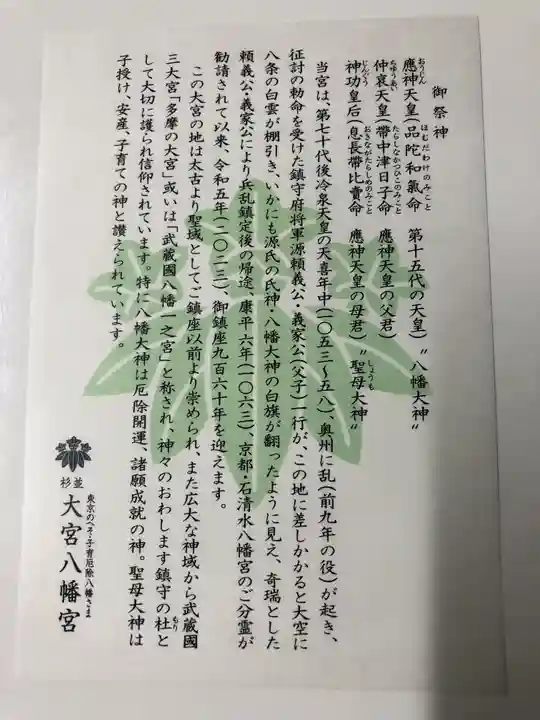 御祭神
應神天皇(品陀和氣命 第十五代の天皇)〝八幡大神〟
おうじん ほむだわけのみこと
仲哀天皇(帶中津日子命 應神天皇の父君)
ちゅうあい たらしなかつひこのみこと
神功皇后(息長帶比賣命 應神天皇の母君)〝聖母大神〟
じんぐう おきながたらしめのみこと しょうも
当宮は、第七十代後冷泉天皇の天喜年中(一〇五三~五八)、奥州に乱(前九年の役)が起き、
征討の勅命を受けた鎮守府将軍源頼義公・義家公(父子)一行が、この地に差しかかると大空に
八条の白雲が棚引き、いかにも源氏の氏神・八幡大神の白旗が翻ったように見え、奇瑞とした
頼義公・義家公により兵乱鎮定後の帰途、康平六年(一〇六三)、京都・石清水八幡宮のご分霊が
勧請されて以来、令和五年(二〇二三)、御鎮座九百六十年を迎えます。
この大宮の地は太古より聖域としてご鎮座以前より崇められ、また広大な神域から武蔵國
三大宮「多摩の大宮」或いは「武蔵國八幡一之宮」と称され、神々のおわします鎮守の杜と
もり
して大切に護られ信仰されています。特に八幡大神は厄除開運、諸願成就の神。聖母大神は
子授け、安産、子育ての神と讃えられています。
東京のへそ・子育厄除八幡さま
杉並 大宮八幡宮